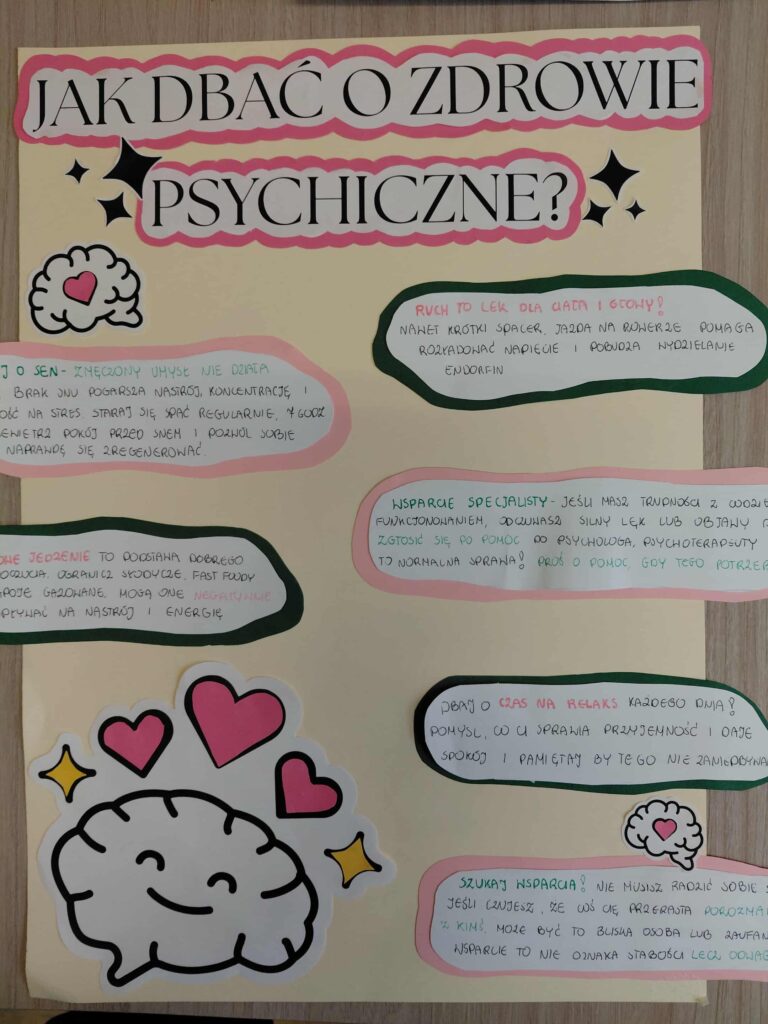 JAK DBAĆ O ZDROWIE
PSYCHICZNE?
RUCH TO LEK DLA CIAŁA I GŁOWY!
NAWET KRÓTKI SPACER, JAZDA NA ROWERZE POMAGA
ROZŁADOWAĆ NAPIĘCIE I POBUDZA WYDZIELANIE
ENDORFIN
J O SEN - ZMĘCZONY UMYSŁ NIE DZIAŁA
BRAK SNU POGARSZA NASTRÓJ, KONCENTRACJĘ I
OŚĆ NA STRES. STARAJ SIĘ SPAĆ REGULARNIE, 7 GODZ
EWIETRZ POKÓJ PRZED SNEM I POZWÓL SOBIE
NAPRAWDĘ SIĘ ZREGENEROWAĆ.
WSPARCIE SPECJALISTY - JEŚLI MASZ TRUDNOŚCI Z CODZIE
FUNKCJONOWANIEM, ODCZUWASZ SILNY LĘK LUB OBJAWY
ZGŁOSIĆ SIĘ PO POMOC DO PSYCHOLOGA, PSYCHOTERAPEUTY
TO NORMALNA SPRAWA! PROŚ O POMOC, GDY TEGO POTRZEB
OWE JEDZENIE TO PODSTAWA DOBREGO
OCZUCIA. OGRANICZ SŁODYCZE, FAST FOODY
POJE GAZOWANE. MOGĄ ONE NEGATYWNIE
PŁYWAĆ NA NASTRÓJ I ENERGIĘ
DBAJ O CZAS NA RELAKS KAŻDEGO DNIA!
POMYŚL, CO CI SPRAWIA PRZYJEMNOŚĆ I DAJE
SPOKÓJ I PAMIĘTAJ BY TEGO NIE ZANIEDBYWA
SZUKAJ WSPARCIA! NIE MUSISZ RADZIĆ SOBIE
JEŚLI CZUJESZ, ŻE COŚ CIĘ PRZERASTA POROZMA
Z KIMŚ. MOŻE BYĆ TO BLISKA OSOBA LUB ZAUFAN
WSPARCIE TO NIE OZNAKA SŁABOŚCI LECZ ODWAG